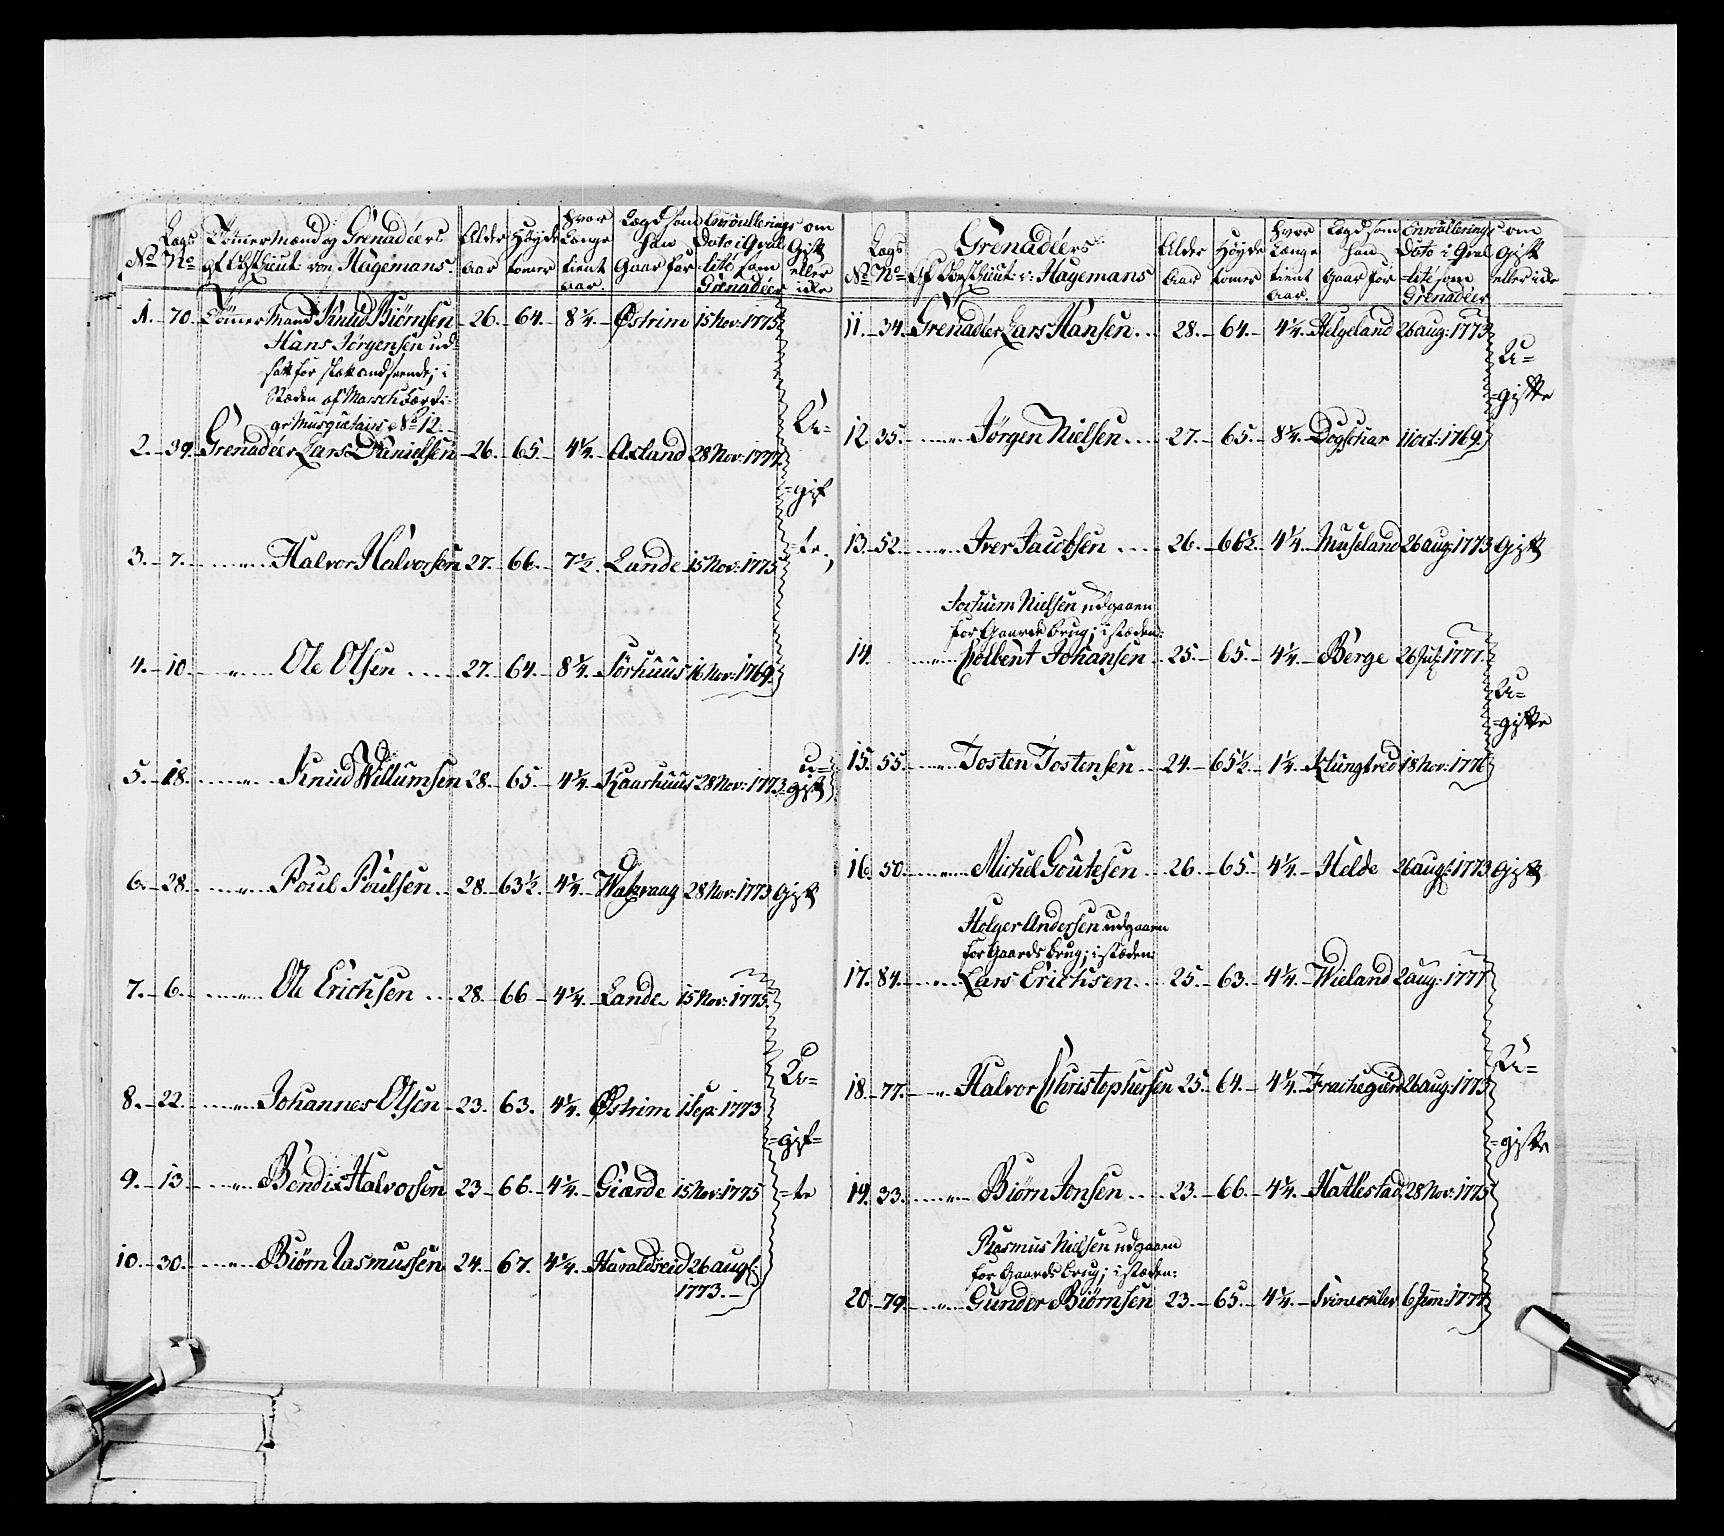 No | Lægs No | Tömmermænd og Grenadéers af Obstlieut: von Hagemans. | Alder Aar | Høyde tomer | Hvor Længe tient aar. | Lægd som han Gaar for | Enroullerings Dato i Qvalité som Grenadeer | om Gift eller ikke
1. 70. Tömmermand Knud Biörnsen 26. 64. 8¼. Østrim 15 Nov: 1775
Hans Jörgensen ud-
sat for i
Stæden af Marschfærdi-
ge Musquetair No 12.
2. 39. Grenadéer Lars Danielsen 26. 65. 4¼. Axland 28 Nov: 1777.
U-
gif
te,
3. 7. " Halvor Halvorsen 27. 66. 7½. Lunde 15 Nov: 1775
4. 10. " Ole Olsen 27. 64. 8¼. Sörhuus 16 Nov: 1769.
5. 18. " Knud Willumsen 28. 65. 4¼. Kaarhuus 28 Nov: 1773. u-
gift
6. 28. " Poul Poulsen 28. 63½. 4¼. 28 Nov: 1773 Gift
7. 6. " Ole Erichsen 28. 66 4¼. Lande 15 Nov: 1775.
8. 22. " Johannes Olsen 23. 63. 4¼. Østrim 1 Sep: 1773
U-
gif-
te
9. 13. " Bendix Halvorsen 23 66. 4¼. Giarde 15 Nov: 1775
10. 30. " Biörn Rasmussen 24. 67. 4¼. Haraldseid 26 aug:
1773.
No | Lægs No | Grenadéers af Obstlieut: v: Hagemans | Alder Aar | Høyde tomer | Hvor Længe tient Aar | Lægd som han Gaar for | Enroullerings Dato i Qvalité som Grenadéer | om Gift eller ikke
11. 34. Grenadéer Lars Hansen 28. 64. 4¼. Helgeland 26 aug: 1773
U-
gifte
12. 35. " Jörgen Nielsen 27. 65. 8¼. 11 oct: 1769.
13. 52. " Iver Jacobsen 26. 66½. 4¼. Museland 26 aug: 1773 Gift
Jochum Nielsen udgaaen
for Gaards brug; i stæden:
14. " Colbent Johansen 25. 65. 4¼. Berge 26 1777.
U-
gifte
15. 55. " Tosten Tostensen 24. 65½. 1¼. 18 Nov: 1776
16. 50. " Michel Goutesen 26. 65. 4¼. Helde 26 aug: 1773 Gift
Holger Andersen udgaaen
for Gaards brug; i stæden:
17. 84. " Lars Erichsen 25. 63. 4¼. Wieland 2 aug: 1777
18. 77. " Halvor Christophersen 25. 64. 4¼. 26 aug: 1773
U-
gifte
19. 33. " Biörn Jonsen 23. 66. 4¼. Hatlestad 28 Nov: 1775
Rasmus Nielsen udgaaen
for Gaards brug; i stæden:
20. 79. " Gunder Biörnsen 23. 65. 4¼. 6 1777